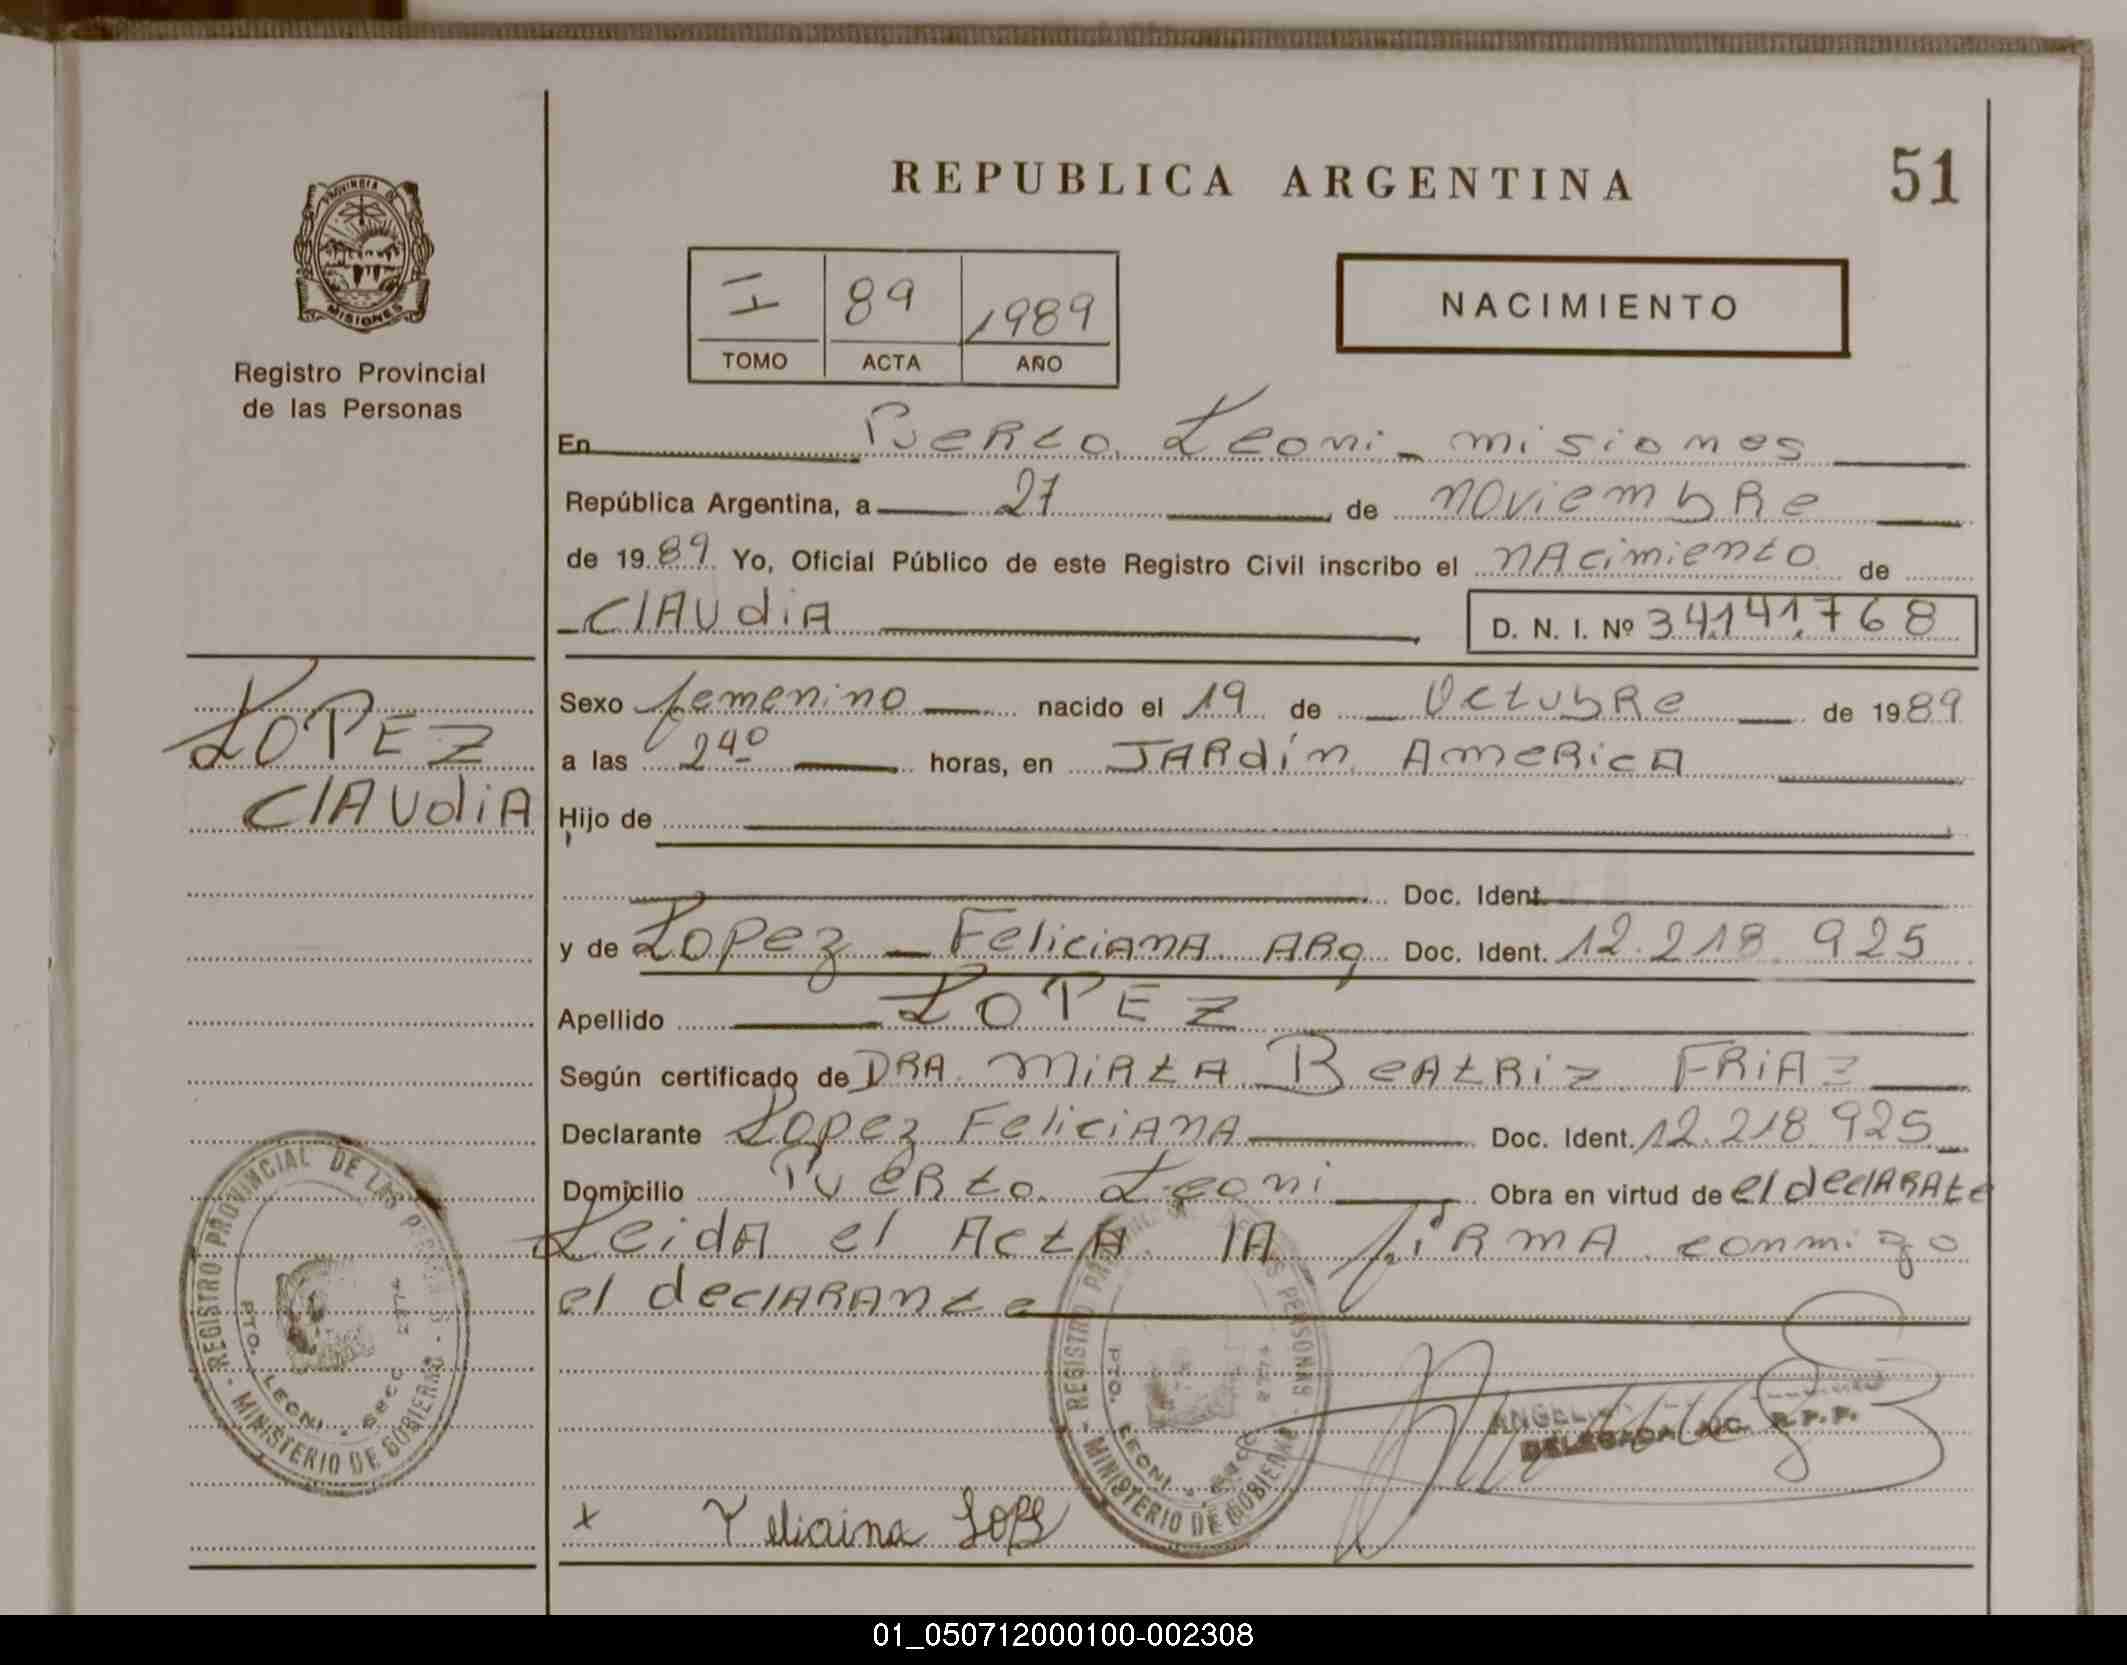 REPUBLICA ARGENTINA
51
PROVINCIA DE
MISIONES
Registro Provincial
de las Personas
I
89
1989
TOMO
ACTA
AÑO
NACIMIENTO
En Puerto Leoni - misiones
República Argentina, a 27 de noviembre
de 1989 Yo, Oficial Público de este Registro Civil inscribo el nAcimiento de
ClAudiA
D. N. I. Nº 34.141.768
LOPEZ
ClAudiA
Sexo femenino nacido el 19 de Octubre de 1989
a las 24º horas, en JARdín AmeRicA
Hijo de
Doc. Ident.
y de Lopez - FeliciAnA ARg Doc. Ident. 12.218.925
Apellido LOPEZ
Según certificado de DRA. MiRtA BeAtRiz FRiAz
Declarante Lopez FeliciAnA Doc. Ident. 12.218.925
Domicilio PueRto Leoni Obra en virtud de el declARAte
LeidA el ActA lA fiRmA conmigo
el declARAnte
REGISTRO PROVINCIAL DE LAS PERSONAS - MINISTERIO DE GOBIERNO
PTO. LEONI - SECC 2274
REGISTRO PERSONAS - MINISTERIO DE GOBIERNO
PTO. LEONI - SECC 2274
DELEGADA R.P.P.
x Feliciana
01_050712000100-002308